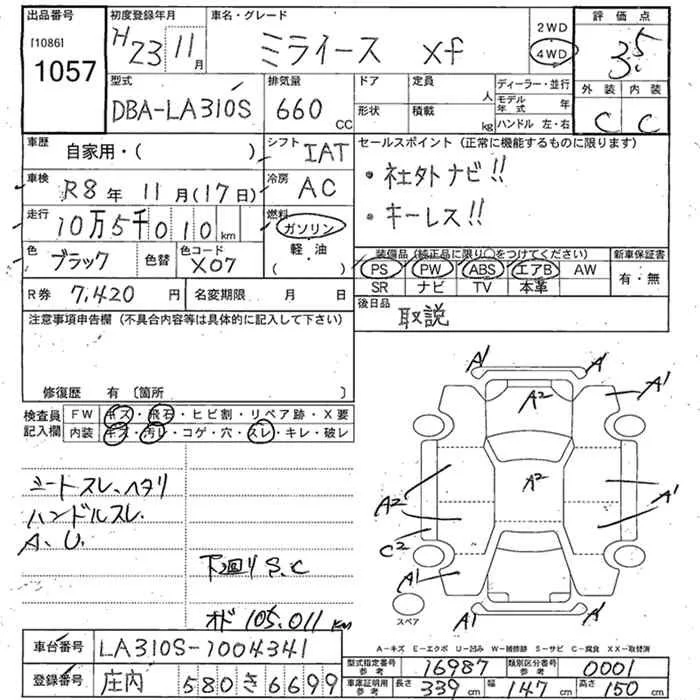 出品番号
[1086]
1057
初度登録年月
H23 11月
車名・グレード
ミライース xf
2WD
4WD
評価点
3.5
型式
DBA-LA310S
排気量
660 CC
ドア
定員
人
形状
積載
kg
ディーラー・並行
モデル年式 年
ハンドル 左・右
外装 内装
C C
車歴
自家用・( )
シフト
IAT
車検
R8年 11月(17日)
冷房
AC
走行
10万5千010km
燃料
ガソリン
軽・油
( )
色
ブラック
色替
色コード
X07
セールスポイント (正常に機能するものに限ります)
・社外ナビ!!
・キーレス!!
装備品(純正品に限り○をつけてください)
新車保証書
PS PW ABS エアB AW
SR ナビ TV 本革
有・無
R券 7,420円
名変期限 月 日
後日品
取説
注意事項申告欄 (不具合内容等は具体的に記入して下さい)
修復歴 有 〔箇所 〕
検査員記入欄
FW キズ・飛石・ヒビ割・リペア跡・X要
内装 キズ・汚レ・コゲ・穴・スレ・キレ・破レ
シートスレ、ヘタリ
ハンドルスレ
A.U.
下廻りS.C
オド 105.011km
A1 A1
A2 A1
A2 A2 A1
C2
A1
A1 A1
スペア
A-キズ E-エクボ U-凹み W-補修跡 S-サビ C-腐食 XX-取替済
車台番号
LA310S-1004341
登録番号
庄内 580 き 6699
型式指定番号 参考 16987
類別区分番号 参考 0001
車庫証明用 参考 長さ 339cm 幅 147cm 高さ 150cm